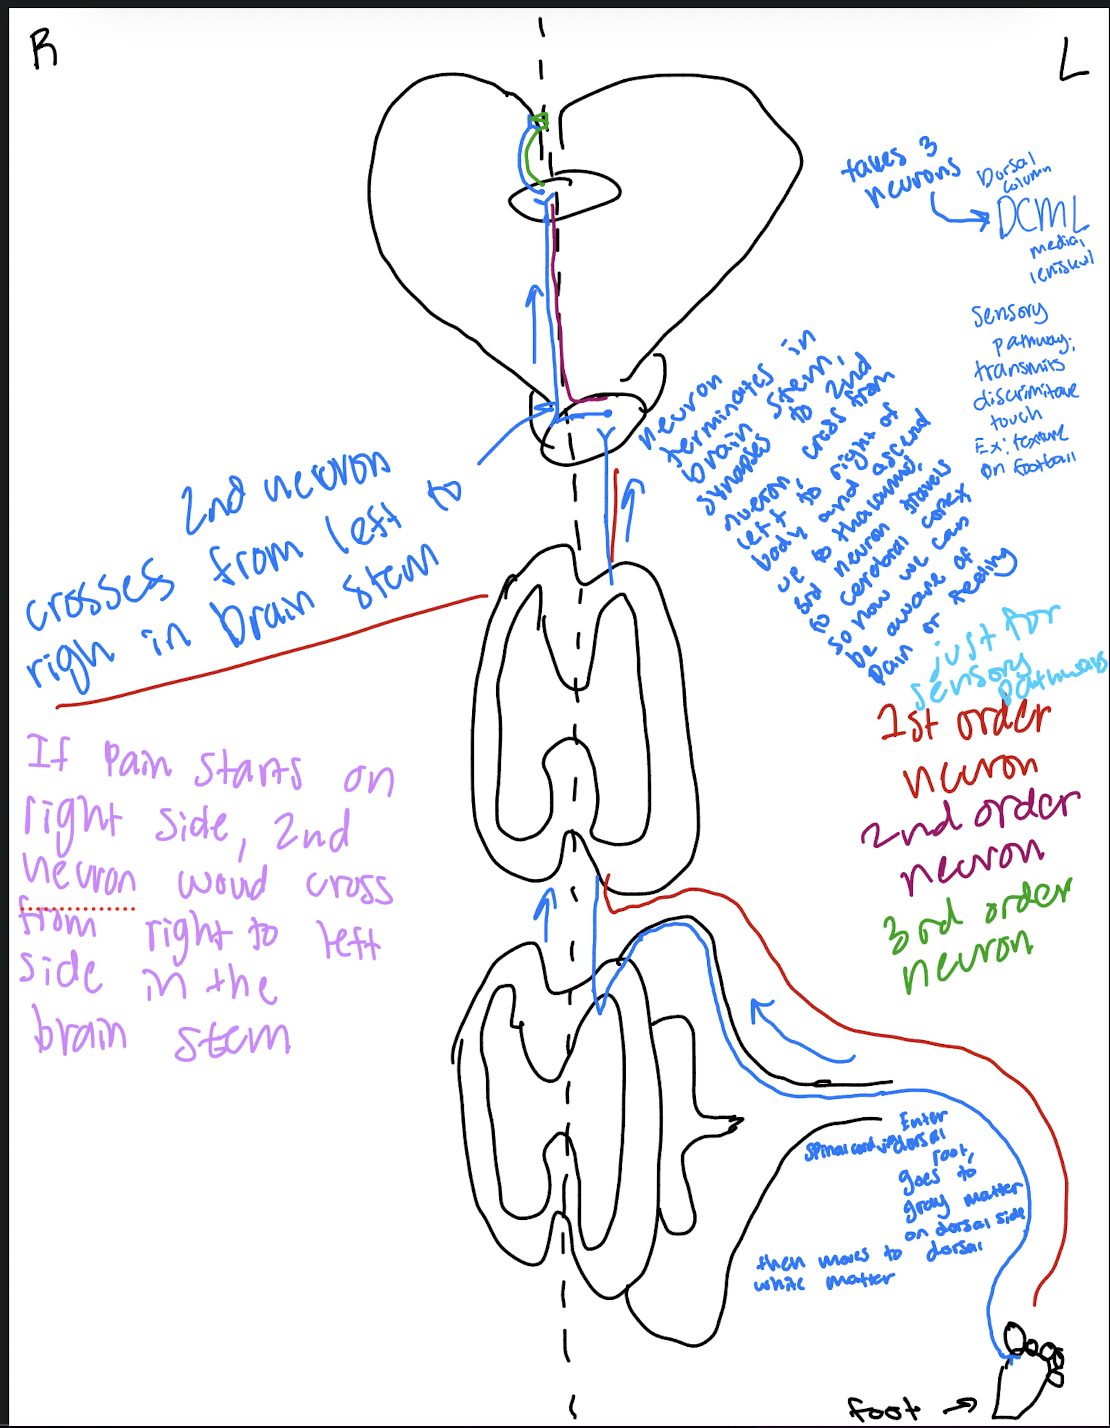 R
L
takes 3
neurons
Dorsal
column
DCML
medial
leniskul
sensory
pathway:
transmits
discrimitave
touch
Ex: texture
on football
neuron
terminates in
brain stem,
synapses to 2nd
nueron, cross from
left to right of
body and ascend
up to thalamus,
3rd neuron travels
to cerebral cortex
so now we can
be aware of
pain or feeling
just for
sensory
pathways
1st order
neuron
2nd order
neuron
3rd order
neuron
2nd neuron
crosses from left to
righ in brain stem
If Pain starts on
right side, 2nd
neuron woud cross
from right to left
side in the
brain stem
Enter
spinal cord via dorsal
root,
goes to
gray matter
on dorsal side
then moves to dorsal
white matter
foot